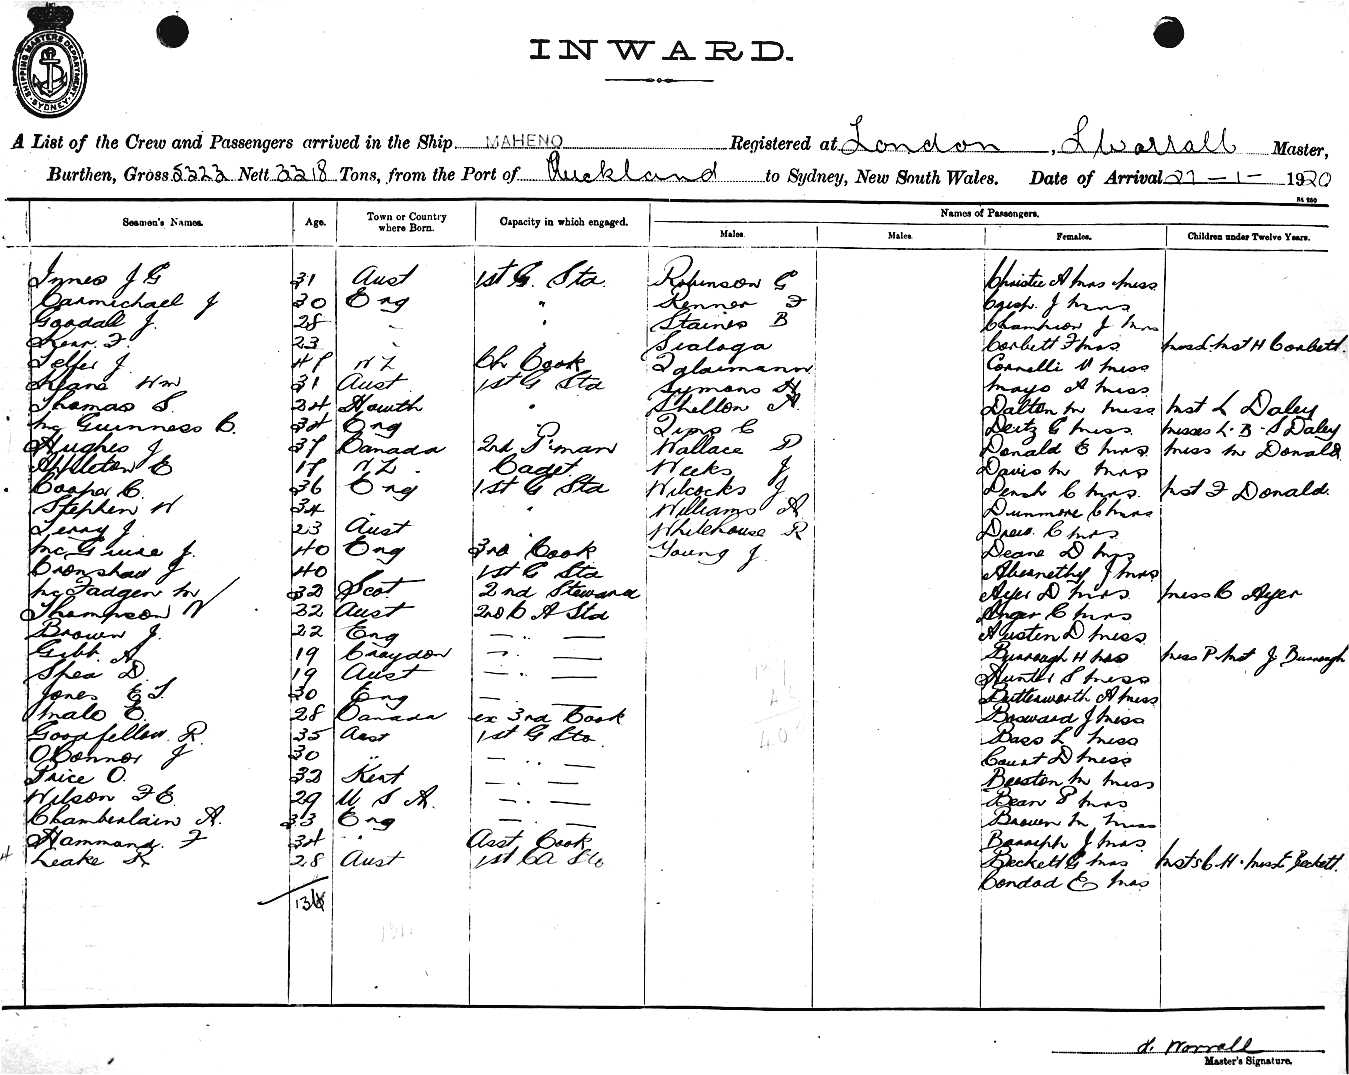 SHIPPING MASTERS DEPARTMENT SYDNEY
INWARD.
A List of the Crew and Passengers arrived in the Ship MAHENO Registered at London, L Worrall Master,
Burthen, Gross 5323 Nett 3318 Tons, from the Port of Auckland to Sydney, New South Wales. Date of Arrival 27-1-1920
Names of Passengers.
Seamen's Names. Age. Town or Country where Born. Capacity in which engaged. Males. Males. Females. Children under Twelve Years.
Innes J G 31 Aust 1st G. Sta. Robinson G Christie A Mrs Miss
Carmichael J 30 Eng " Renner F Crisp. J Mrs
Goodall J. 28 " Staines B Champion J Mrs
23 Sialoga Corbett F Mrs Mst H Corbett.
Telfer J. 47 NZ Ch Cook Connelli V Miss
Keane Wm 31 Aust 1st G Sta Symons H Mayo A Miss
Thomas S. 24 Howth " Shellon A Dalton M Miss Mst L Daley
Mc Guinness C. 34 Eng Tims C Deitz G Miss Misses L. B. S Daley
Hughes J 37 Canada 2nd P. man Wallace D Donald E Mrs Miss M Donald
Appleton E 17 NZ. Cadet Weeks J Davis M Mrs
Cooper C. 36 Eng 1st G Sta Wilcocks J Dench C Mrs. Mst F Donald.
Stephen W 34 " Williams A Dunmore C Mrs
Terry J. 23 Aust Whitehouse R Drew C Mrs
Mc Guire J. 40 Eng 3rd Cook Young J. Deane D Mrs
Cronshaw J 40 1st G Sta Abernethy J Mrs
Mc Fadgen M 32 Scot 2nd Steward Ayer D Mrs Miss C Ayer
Thompson W 32 Aust 2nd C A Sta Anger C Mrs
Brown J. 22 Eng — . — Austen D Miss
Gibb A 19 Croydon — . — Burrough H Mrs Miss P Mst J Burrough
Shea D. 19 Aust — . — Hunter S Miss
Jones E T. 30 Eng — . — Butterworth A Miss
Male C. 28 Canada ex 3rd Cook Boxward J Miss
Goodfellow R. 35 Aust 1st G Sta. Bass L Miss
O'Connor J 30 " — . — Count D Miss
Price O. 32 Kent — . — Beeston M Miss
Wilson F C. 29 U S A. — . — Bean P Mrs
Chamberlain A. 33 Eng — . — Brown M Miss
Hammond F 34 " Asst Cook J Mrs.
Leake R 28 Aust 1st CA Sta Beckett G Mrs Msts C H. Miss E Beckett.
Condod E Mrs
L. Worrall
Master's Signature.